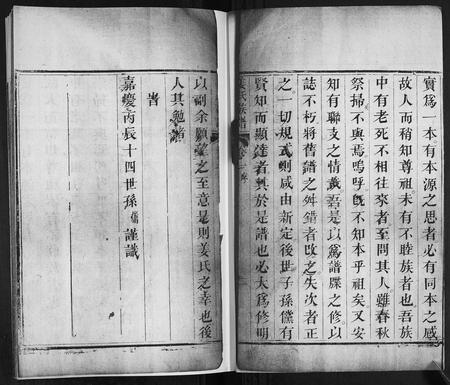 實爲一本有本源之思者必有同本之感
故人而稍知尊祖未有不睦族者也吾族
中有老死不相往來者至問其人雖春秋
祭掃不與焉嗚呼既不知本乎祖矣又安
知有聯支之情哉吾是以爲譜牒之修以
誌不朽將舊譜之舛錯者改之失次者正
之一切規式則咸由新定後世子孫儻有
賢知而顯達者興於是譜也必大爲修明
姜氏族譜
以副余願望之至意是則姜氏之幸也後
人其勉諸
旹
嘉慶丙辰十四世孫 謹識